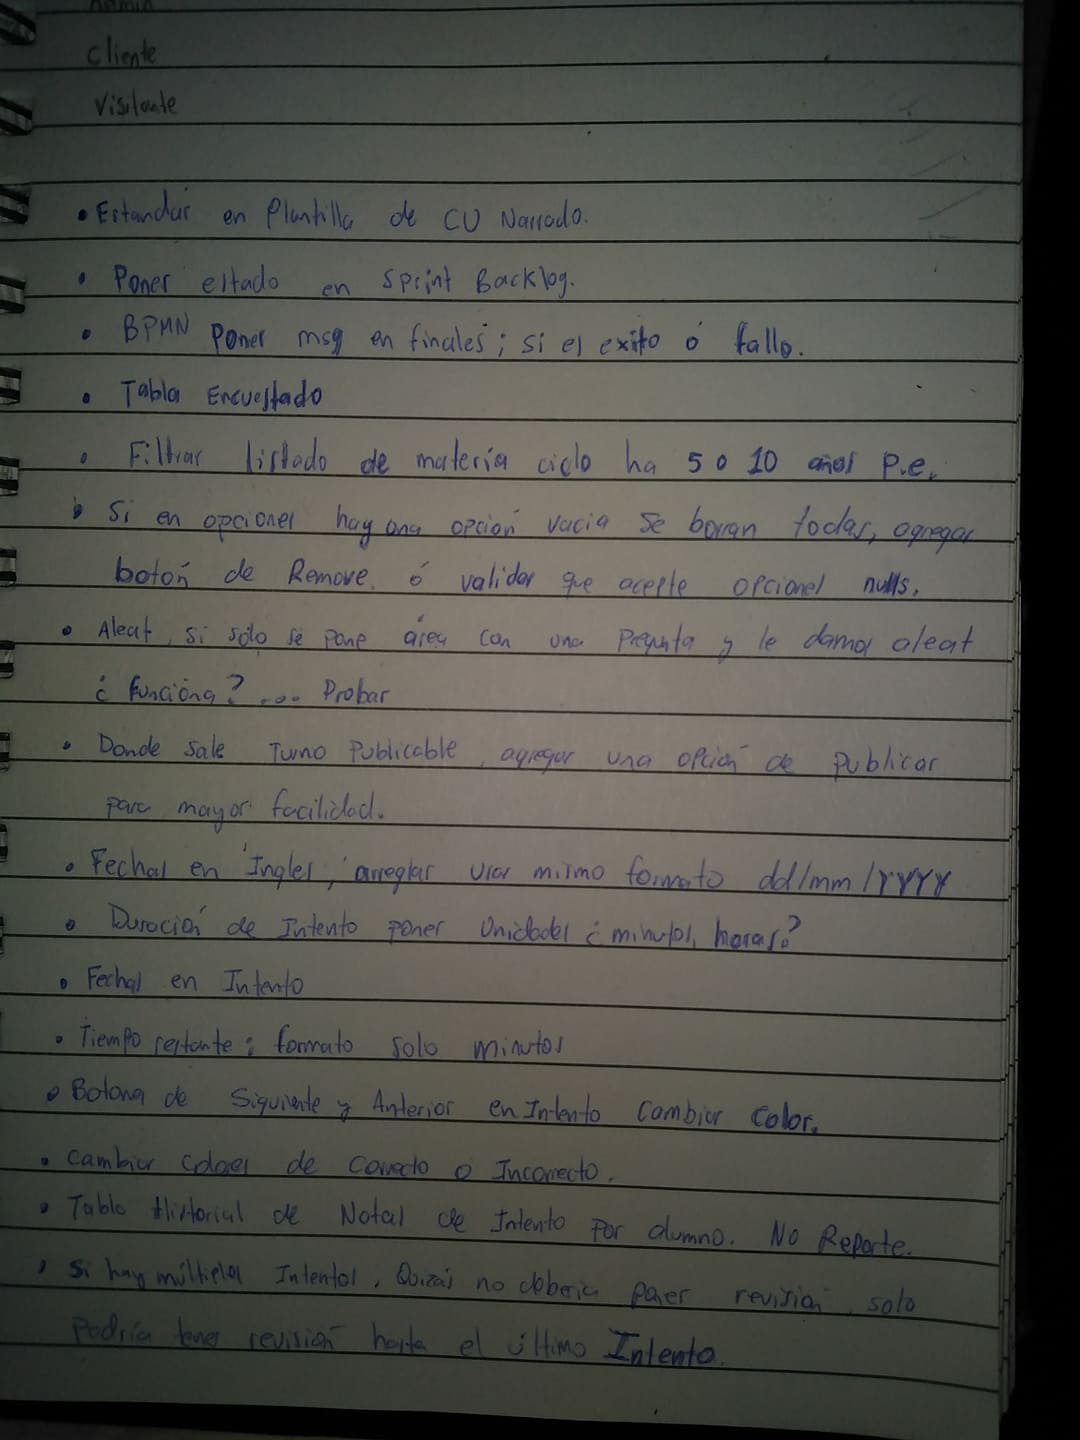 Admin
Cliente
Visitante
• Estandar en Plantilla de CU Narrado.
• Poner estado en Sprint Backlog.
• BPMN Poner msg en finales; si es exito ó fallo.
• Tabla Encuestado
• Filtrar listado de materia ciclo ha 5 o 10 años p.e.
• Si en opciones hay una opción vacia se borran todas, agregar
botón de Remove. ó validar que acepte opciones nulls.
• Aleat, si sólo se pone área con una pregunta y le damos aleat
¿funciona? .... Probar
• Donde sale Turno Publicable, agregar una opción de publicar
para mayor facilidad.
• Fechas en Ingles, arreglar usar mismo formato dd/mm/YYYY
• Duración de Intento poner Unidades ¿minutos, horas?
• Fechas en Intento
• Tiempo restante: formato solo minutos
• Botona de Siguiente y Anterior en Intento Cambiar Color.
• Cambiar colores de Correcto o Incorrecto.
• Tabla Historial de Notas de Intento por alumno. No Reporte.
• Si hay múltiples Intentos, Quizás no debería poner revisión, solo
podría tener revisión hasta el último Intento.